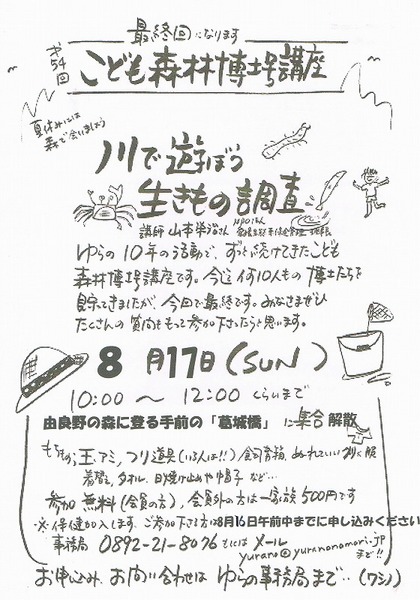 最終回になります
第54回
こども森林博士号講座
夏休みには
森で会いましょう
川で遊ぼう
生きもの調査
講師 山本栄治さん NPO法人
ゆらの10年の活動で、ずっと続けてきたこども
森林博士号講座です。今迄何10人もの博士たちを
育ててきましたが、今回で最終です。みなさまぜひ
たくさんの質問をもって参加下さったらと思います。
8月17日(SUN)
10:00 〜 12:00 くらいまで
由良野の森に登る手前の「葛城橋」に集合 解散
もちもの 玉アミ、つり道具(いる人は!!)飼育箱、ぬれていいクツ、服
着替え、タオル、日焼け止めや帽子など…
参加 無料(会員の方)、会員外の方は一家族500円です
※保健加入します。ご参加下さる方は8月16日午前中までに申し込みください
事務局 0892-21-8076 もしくは メール
yurano@yuranonomori.jp
まで!!
お申し込み、お問い合わせは ゆらの事務局まで…(ワシノ)